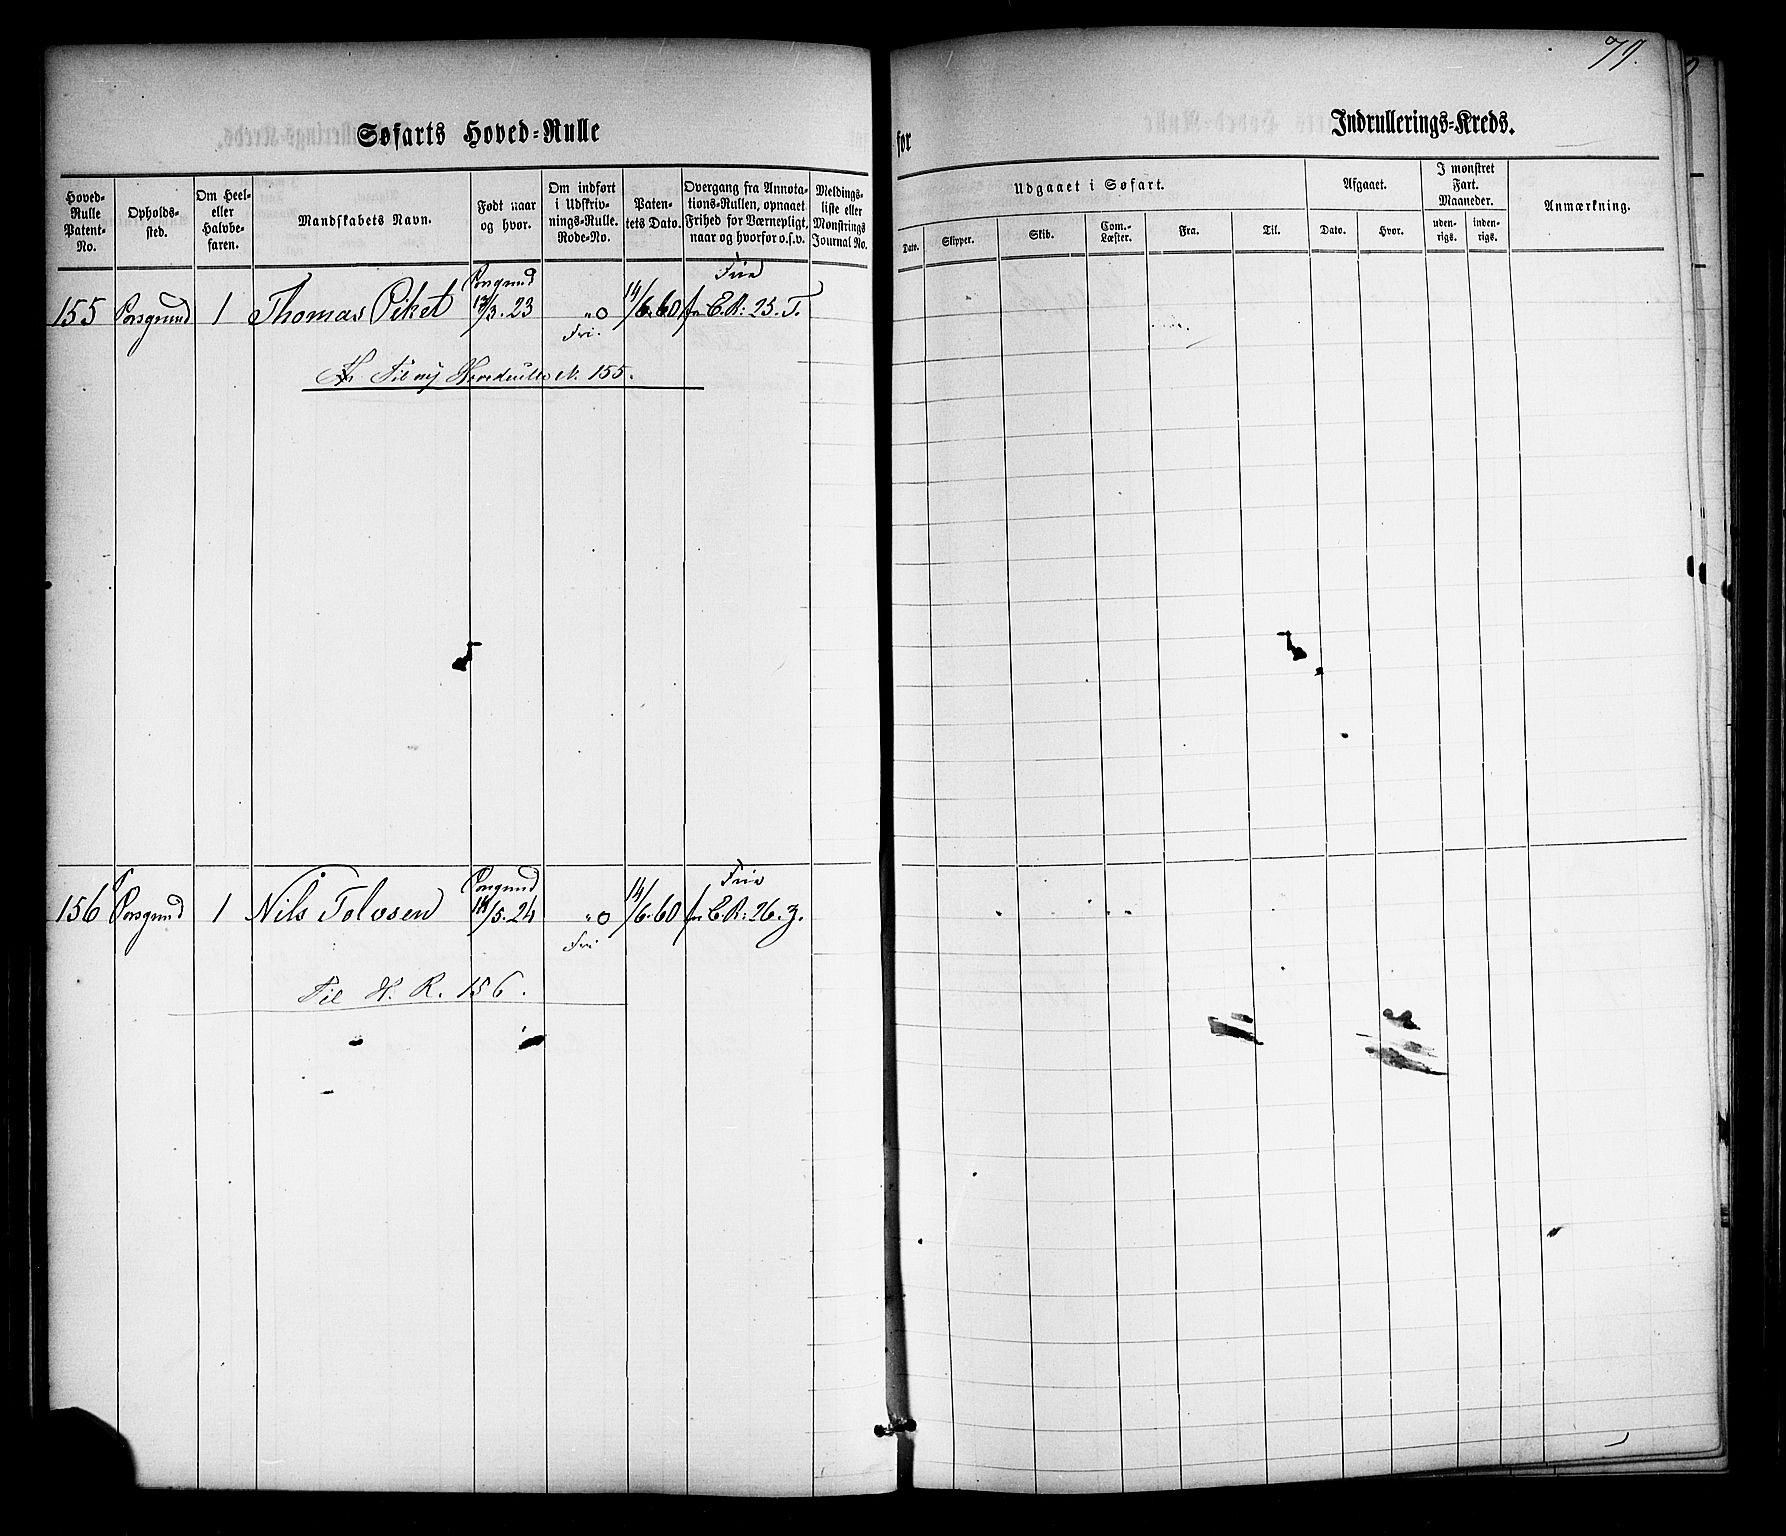 79.
Søfarts Hoved-Rulle for Indrullerings-Kreds.
Hoved-Rulle Patent-No.
Opholds-sted.
Om Heel- eller Halvbe-faren.
Mandskabets Navn.
Født naar og hvor.
Om indført i Udskriv-nings-Rulle. Rode-No.
Paten-tets Dato.
Overgang fra Annota-tions-Rullen, opnaaet Frihed for Værnepligt, naar og hvorfor o.s.v.
Meldings-liste eller Mønstrings Journal No.
Udgaaet i Søfart.
Dato.
Skipper.
Skib.
Com.-Læster.
Fra.
Til.
Afgaaet.
Dato.
Hvor.
I mønstret Fart. Maaneder.
uden-rigs.
inden-rigs.
Anmærkning.
Porsgrund Frie
155 Porsgrund 1 Thomas Piket 17/3. 23 "0 14/6. 60 fr C.R: 25. T.
Fri.
Til ny Hovedrulle N. 155.
Porsgrund Frie
156 Porsgrund 1 Nils Tolvsen 18/5. 24 "0 14/6. 60 fr C.R: 26. Z.
Fri.
Til H. R. 156.